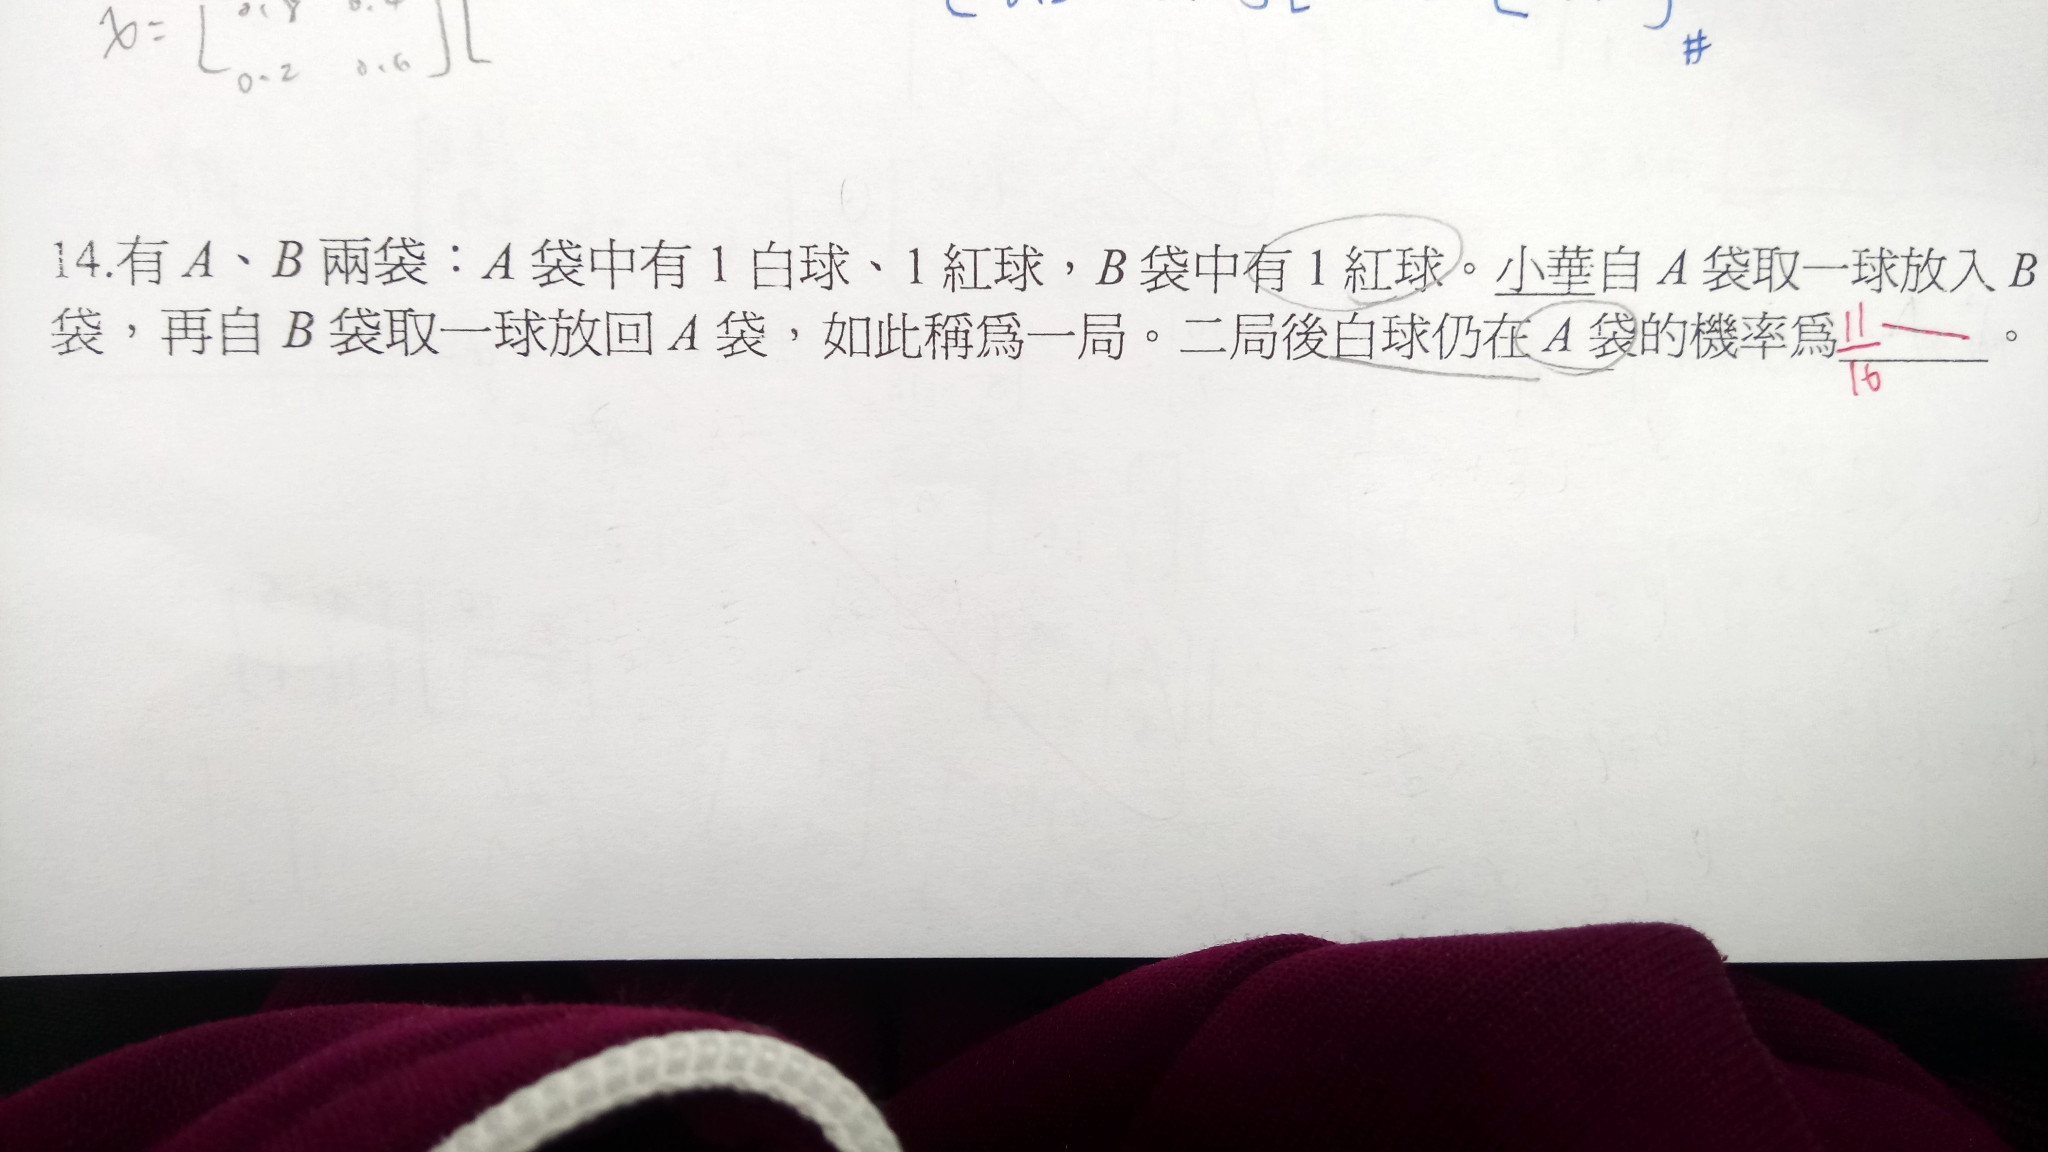 x= [ 0.8 0.4
0.2 0.6 ] [
#
14.有 A、B 兩袋：A 袋中有 1 白球、1 紅球，B 袋中有 1 紅球。小華自 A 袋取一球放入 B
袋，再自 B 袋取一球放回 A 袋，如此稱爲一局。二局後白球仍在 A 袋的機率爲 11/16 。